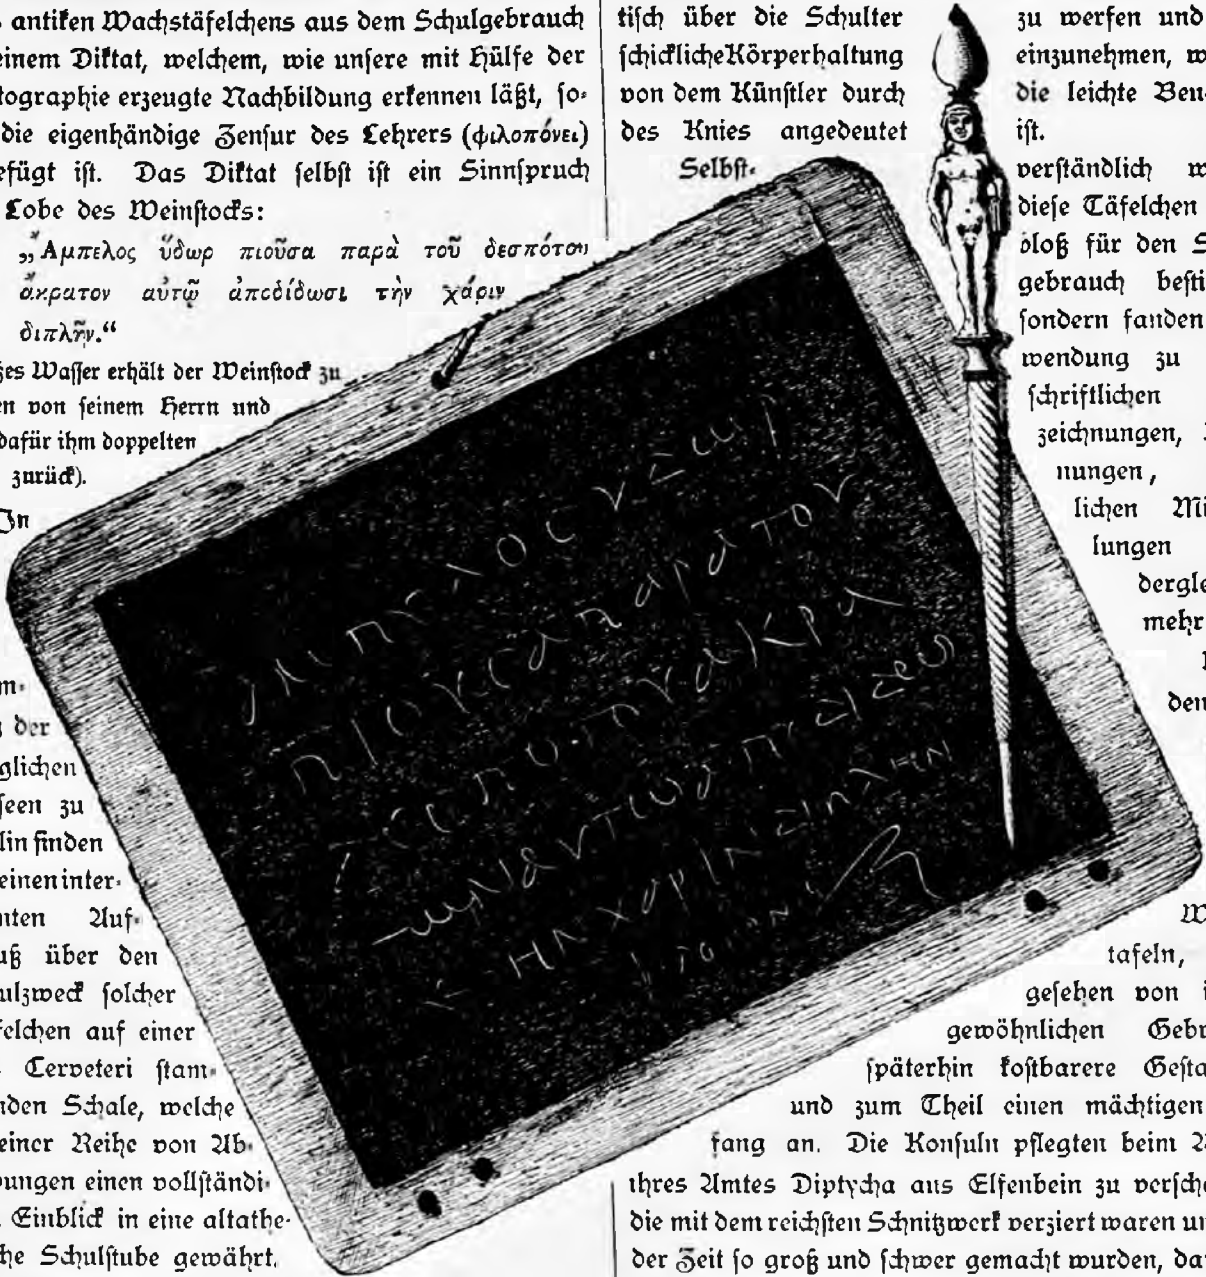 antiken Wachstäfelchens aus dem Schulgebrauch
einem Diktat, welchem, wie unsere mit Hülfe der
tographie erzeugte Nachbildung erkennen läßt, so-
die eigenhändige Zensur des Lehrers (φιλοπόνει)
efügt ist. Das Diktat selbst ist ein Sinnspruch
Lobe des Weinstocks:
„Ἄμπελος ὕδωρ πιοῦσα παρὰ τοῦ δεσπότου
ἄκρατον αὐτῷ ἀποδίδωσι τὴν χάριν
διπλῆν.“
es Wasser erhält der Weinstock zu
en von seinem Herrn und
dafür ihm doppelten
zurück).
In
m-
der
glichen
seen zu
lin finden
einen inter-
nten Auf-
uß über den
ulzweck solcher
felchen auf einer
Cerveteri stam-
nden Schale, welche
einer Reihe von Ab-
ungen einen vollständi-
Einblick in eine altathe-
che Schulstube gewährt.
ΑΜΠΕΛΟCΥΔωΡ
ΠΙΟΥCΑΠΑΡΑΤΟΥ
ΔΕCΠΟΤΟΥΑΚΡΑ
ΤΗΝΧΑΡΙΝΔΙΠΛΗΝ
tisch über die Schulter zu werfen und
schickliche Körperhaltung einzunehmen, w
von dem Künstler durch die leichte Beu-
des Knies angedeutet ist.
Selbst- verständlich w
diese Täfelchen
bloß für den S
gebrauch besti
sondern fanden
wendung zu
schriftlichen
zeichnungen,
nungen,
lichen Mi
lungen
dergle
mehr
den
W
tafeln,
gesehen von i
gewöhnlichen Gebr
späterhin kostbarere Gesta
und zum Theil einen mächtigen
fang an. Die Konsuln pflegten beim A
ihres Amtes Diptycha aus Elfenbein zu versche
die mit dem reichsten Schnitzwerk verziert waren un
der Zeit so groß und schwer gemacht wurden, da